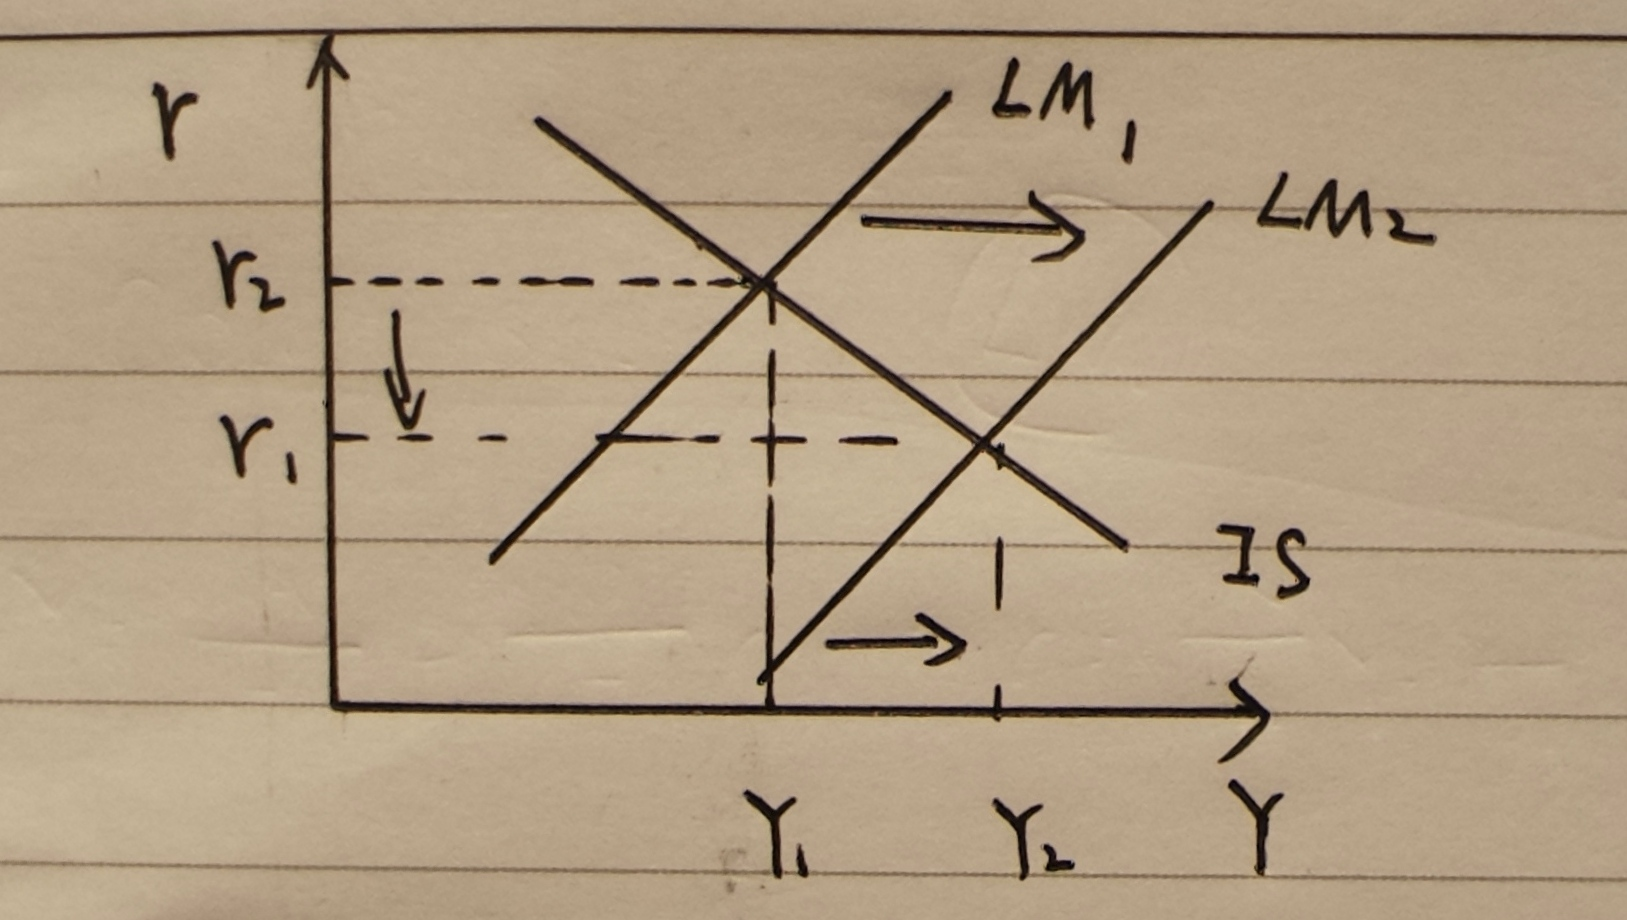 r
LM₁
LM₂
r₂
r₁
IS
Y₁ Y₂ Y